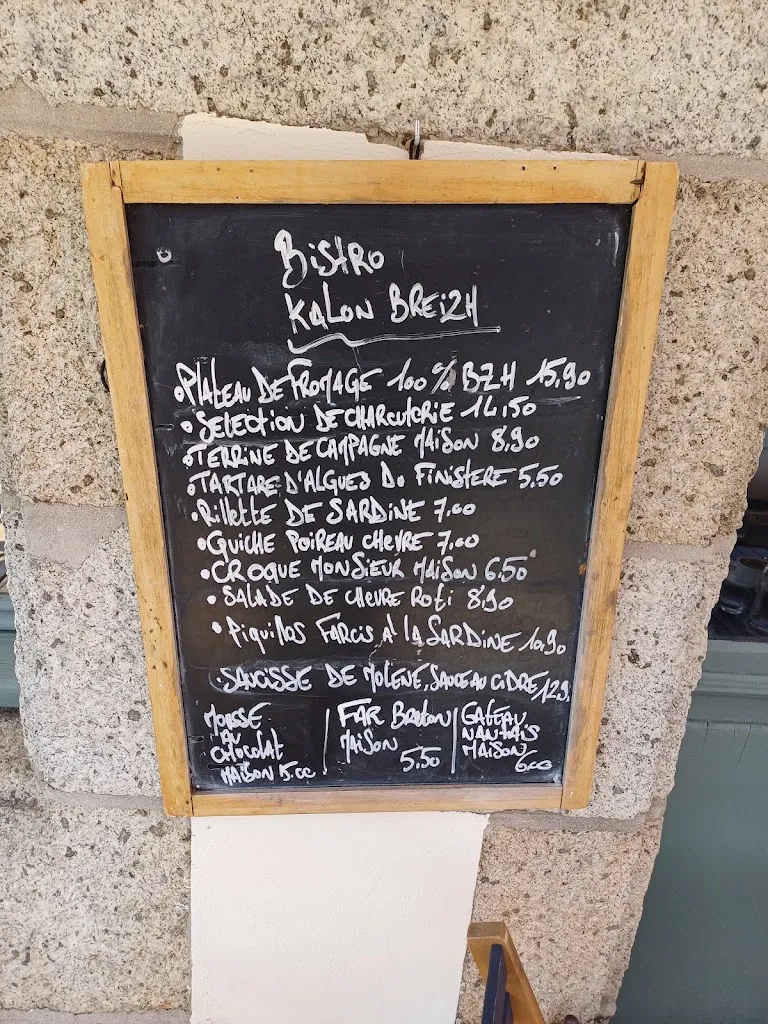 BISTRO
KALON BREIZH
•PLATEAU DE FROMAGE 100% BZH 15,90
•SELECTION DE CHARCUTERIE 14,50
•TERRINE DE CAMPAGNE MAISON 8,90
•TARTARE D'ALGUES DU FINISTERE 5,50
•Rillette DE SARDINE 7,00
•QUICHE POIREAU CHEVRE 7,00
•CROQUE MONSIEUR MAISON 6,50
•SALADE DE CHEVRE ROTI 8,90
•PIQUILLOS FARCIS A LA SARDINE 10,90
•SAUCISSE DE MOLENE, SAUCE AU CIDRE 12,9
MOUSSE
AU
CHOCOLAT
MAISON 5.00
FAR Breton
MAISON
5.50
GATEAU
NANTAIS
MAISON
6,00